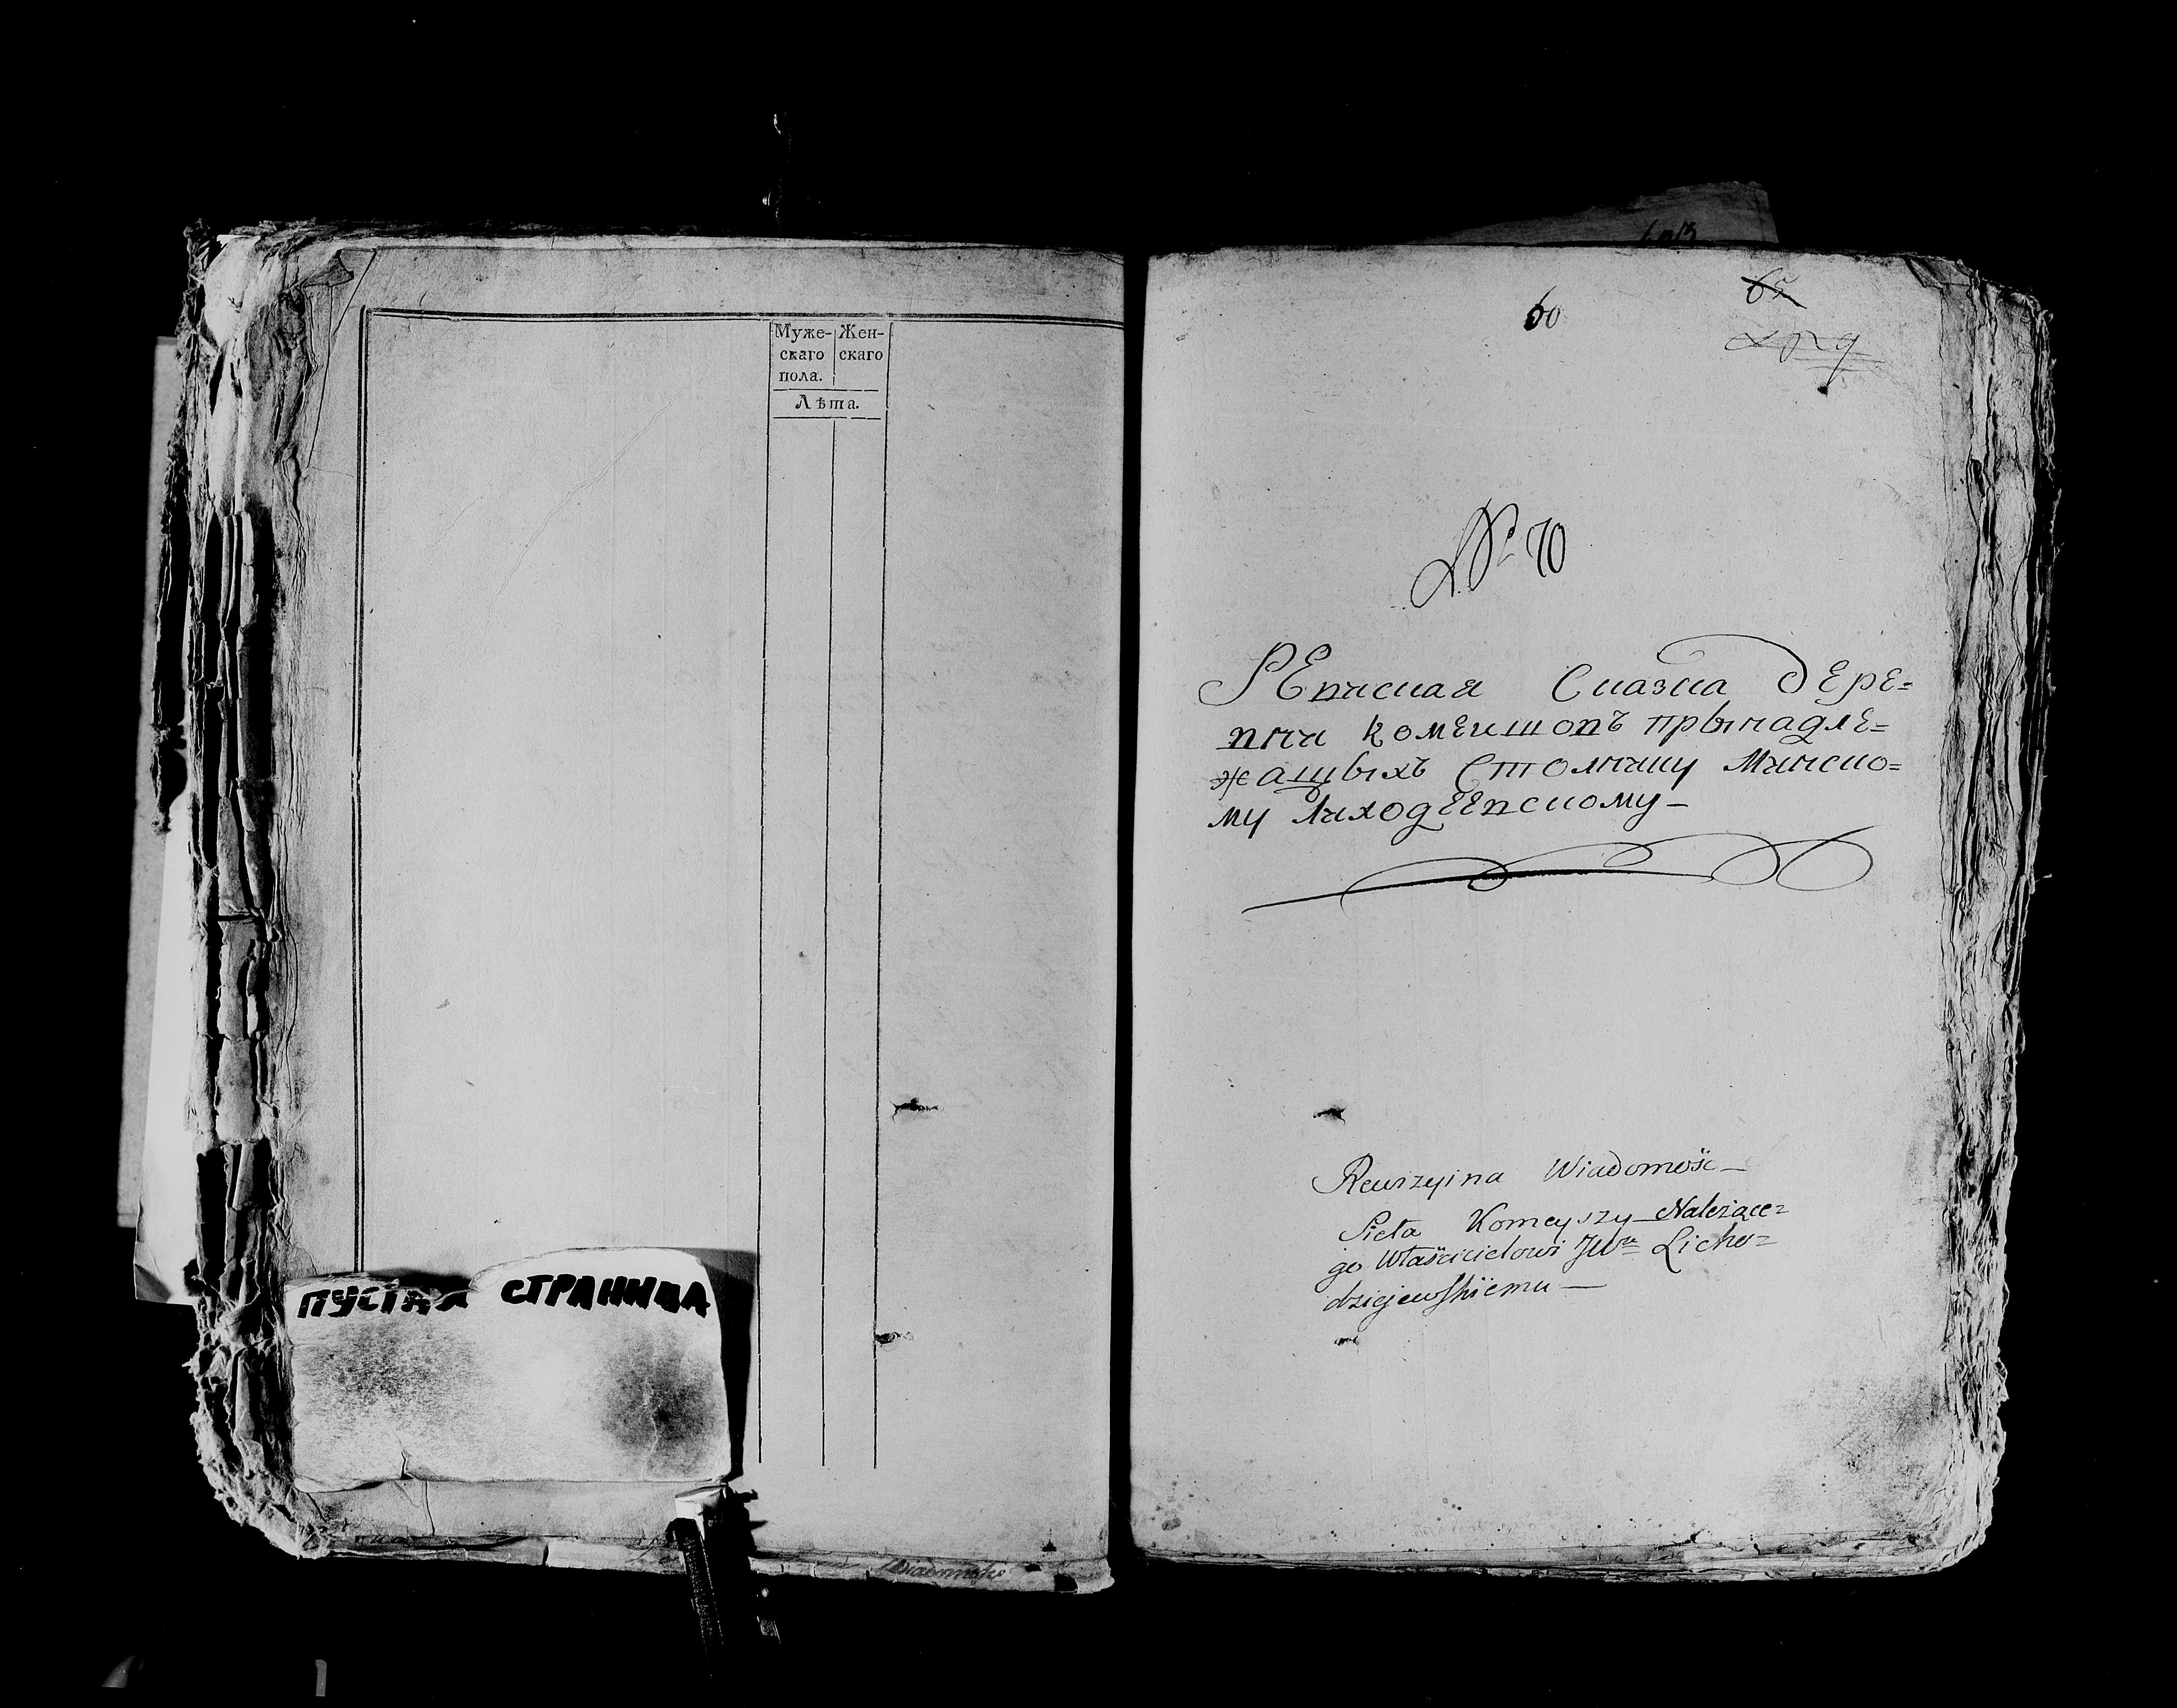 Муже- Жен-
скаго скаго
пола.
Лѣта.
ПУСТАЯ СТРАНИЦА
60
65
№ 70
РЕвисная Сказка дЕрЕ=
вни комЕишовъ прынадлЕ=
жащыхъ Столнику Минско=
му лиходЕЕвскому —
Rewizyina Wiadomość —
Sieła Komeyszy Należące=
go Właścicielowi JWu Licho=
dziejewskiemu —